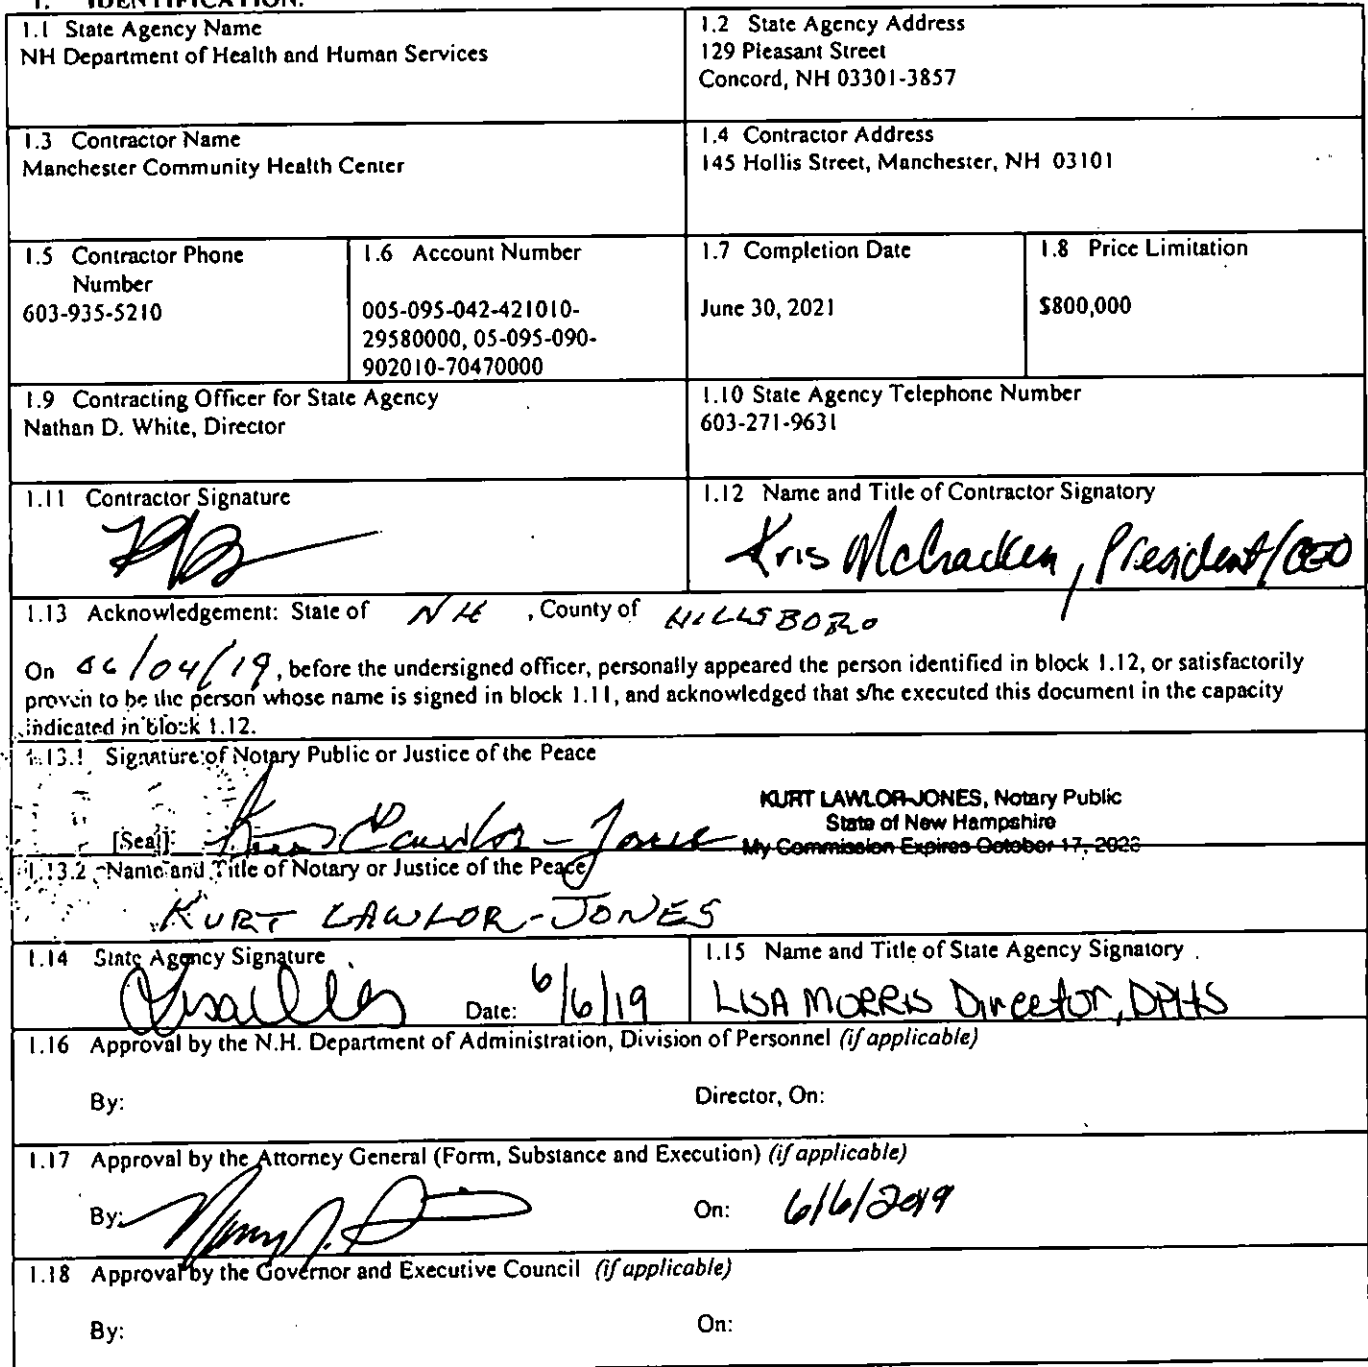 1. IDENTIFICATION.
1.1 State Agency Name
NH Department of Health and Human Services
1.2 State Agency Address
129 Pleasant Street
Concord, NH 03301-3857
1.3 Contractor Name
Manchester Community Health Center
1.4 Contractor Address
145 Hollis Street, Manchester, NH 03101
1.5 Contractor Phone
Number
603-935-5210
1.6 Account Number
005-095-042-421010-
29580000, 05-095-090-
902010-70470000
1.7 Completion Date
June 30, 2021
1.8 Price Limitation
$800,000
1.9 Contracting Officer for State Agency
Nathan D. White, Director
1.10 State Agency Telephone Number
603-271-9631
1.11 Contractor Signature
1.12 Name and Title of Contractor Signatory
Kris McCracken, President/CEO
1.13 Acknowledgement: State of NH , County of HILLSBORO
On 06/04/19, before the undersigned officer, personally appeared the person identified in block 1.12, or satisfactorily
proven to be the person whose name is signed in block 1.11, and acknowledged that s/he executed this document in the capacity
indicated in block 1.12.
1.13.1 Signature of Notary Public or Justice of the Peace
KURT LAWLOR-JONES, Notary Public
State of New Hampshire
[Seal] Kurt Lawlor-Jones My Commission Expires October 17, 2023
1.13.2 Name and Title of Notary or Justice of the Peace
KURT LAWLOR-JONES
1.14 State Agency Signature
Date: 6/6/19
1.15 Name and Title of State Agency Signatory
LISA MORRIS Director, DPHS
1.16 Approval by the N.H. Department of Administration, Division of Personnel (if applicable)
By: Director, On:
1.17 Approval by the Attorney General (Form, Substance and Execution) (if applicable)
By: On: 6/6/2019
1.18 Approval by the Governor and Executive Council (if applicable)
By: On: